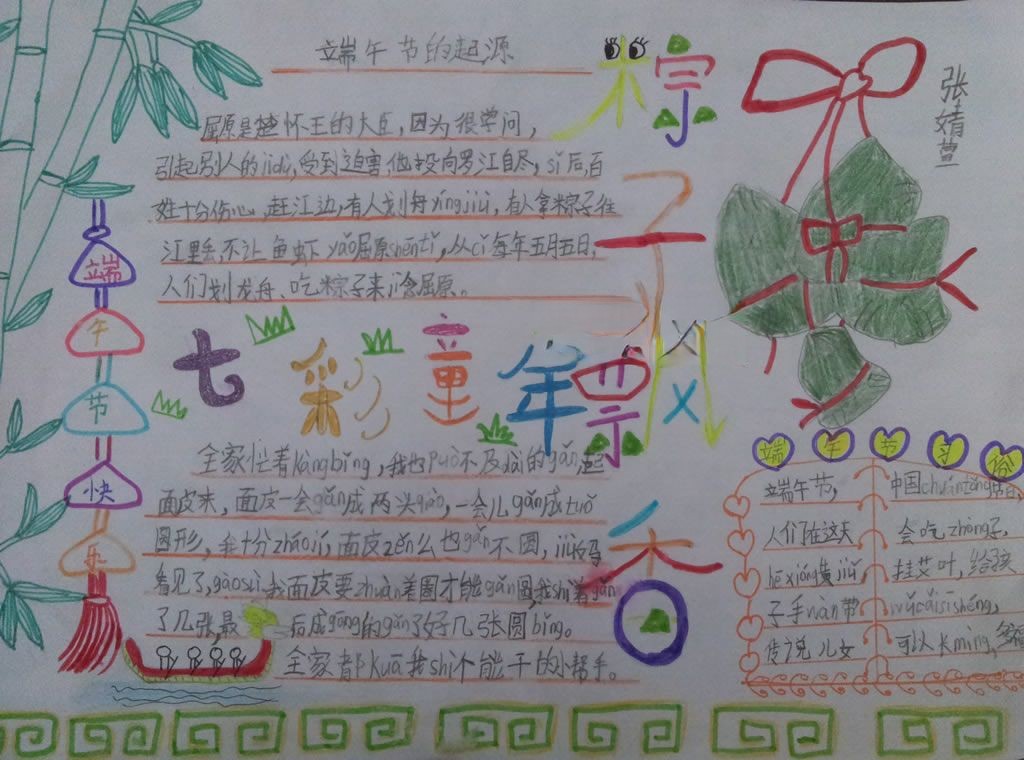 端午节的起源
屈原是楚怀王的大臣，因为很学问，
引起别人的jídù，受到迫害，他投向罗江自尽，sǐ后，百
姓十分伤心，赶江边，有人划舟xíngjiù，有人拿粽子往
江里丢，不让鱼虾yǎo屈原shēntǐ，从cǐ每年五月五日，
人们划龙舟、吃粽子来jì念屈原。
粽
子
飘
香
张婧萱
端
午
节
快
乐
七彩童年
票
全家忙着kàngbing，我也pòò不及dài的gǎn起
面皮来，面皮一会gǎn成两头qiào，一会儿gǎn成tuǒ
圆形，十分zhāojí，面皮zěn么也gǎn不圆，jiù
看见了，gàosù我面皮要zhuàn着圈才能gǎn圆，我shì着gǎn
了几张，最后成gōng的gǎn了好几张圆bǐng。
全家都kuā我shì不能干的小帮手。
端午节习俗
端午节，
人们在这天
hē xióng黄jiǔ
子手wàn带
传说儿女
中国chuántǒng节日
会吃zhòng子，
挂艾叶，给孩
wǔcǎisīshéng，
可以kmìng，